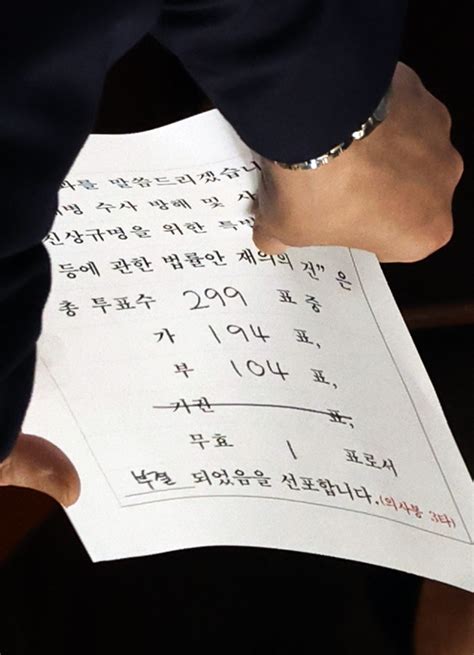 를 말씀드리겠습니
병 수사 방해 및 사
진상규명을 위한 특
등에 관한 법률안 재의의 건" 은
총 투표수 299 표 중
가 194 표,
부 104 표,
기권 표,
무효 1 표로서
부결 되었음을 선포합니다. (의사봉 3타)